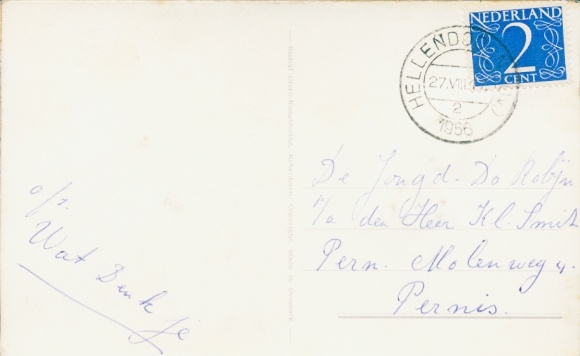 NEDERLAND
2
CENT
HELLENDO
27.VIII
2
1956
De Jongd. Do Robijn
p/a den Heer Kl. Smith
Pern. Molenweg 4.
Pernis.
o/z.
Wat Denk je